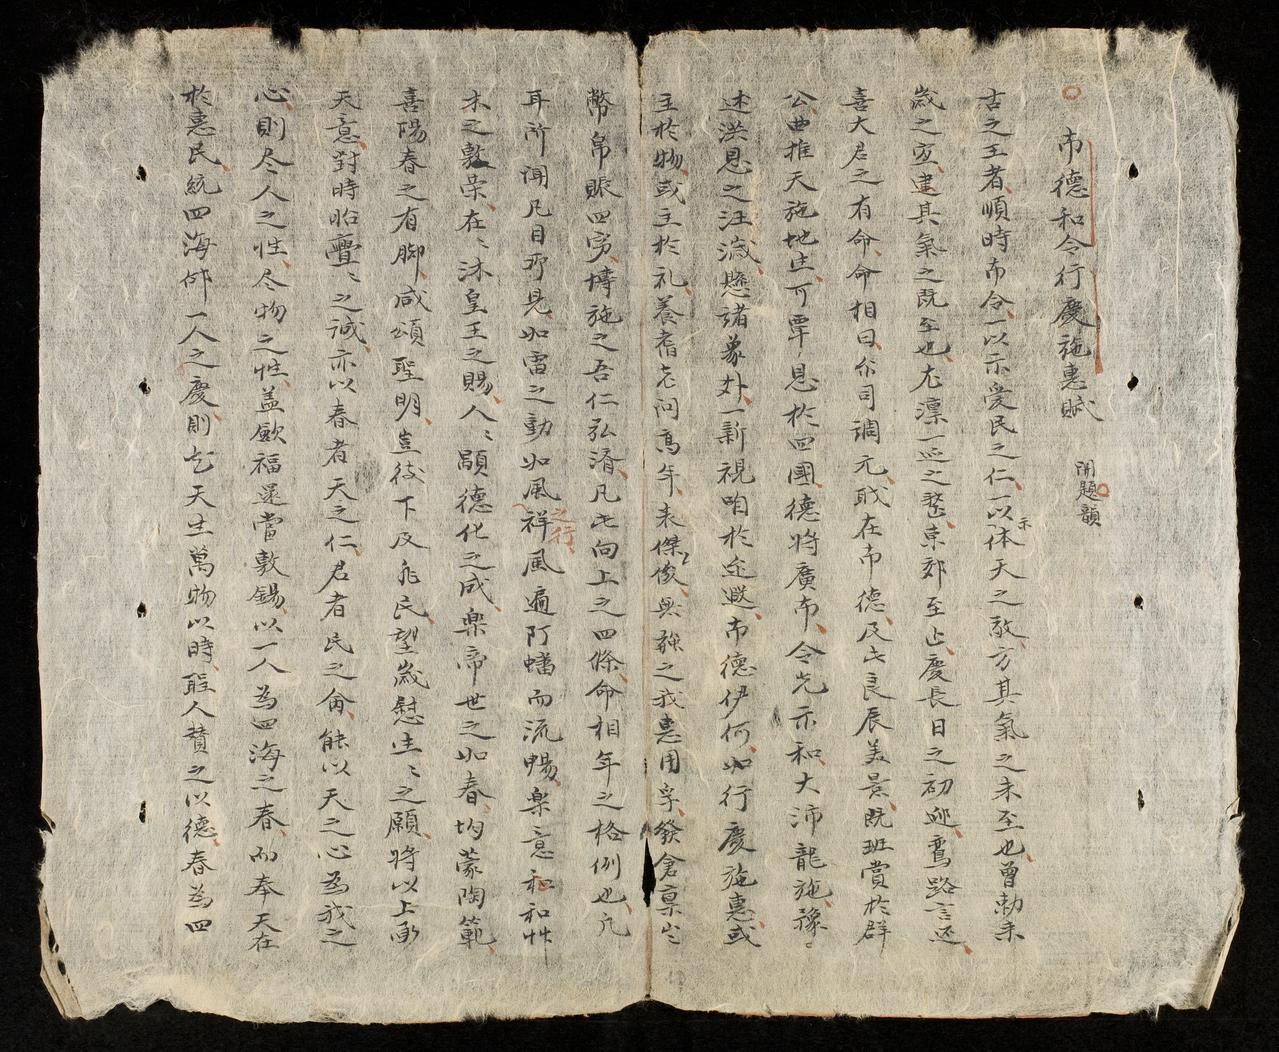 布德和令行慶施惠賦 開題韻
古之王者順時布令一以示愛民之仁一以示体天之敬方其氣之未至也曾勅未
歳之宜建其氣之既至也尤凛一巡之整東郊至止慶長日之初迎鸞路言还
喜大君之有命命相曰尔司調元戝在布德及此良辰美景既班賞於群
公曲推天施地生可覃恩於四國德将廣布令先示和大沛龍施豫
述洪恩之汪濊懸諸象外一新視咱於近遐布德伊何如行慶施惠或
主於物或主於礼養耆老问高年表傑俊與旌之我惠用孚發倉禀出
幣帛賑四穷博施之吾仁弘済凡此向上之四條命相年之格例也凡
耳所闻凡目所見如雷之動如風之行祥風遍阡蟠而流暢楽意和和艸
木之敷栄在〻沐皇王之賜人〻顒德化之成楽帝世之如春均蒙陶範
喜陽春之有脚咸頌聖明豈徒下及兆民望歳慰生〻之願将以上承
天意對時昭亹〻之诚亦以春者天之仁君者民之命能以天之心為我之
心則尽人之性尽物之性盖歛福還當敷錫以一人為四海之春而奉天在
於惠民統四海仰一人之慶則乞天生萬物以時聖人賛之以德春為四